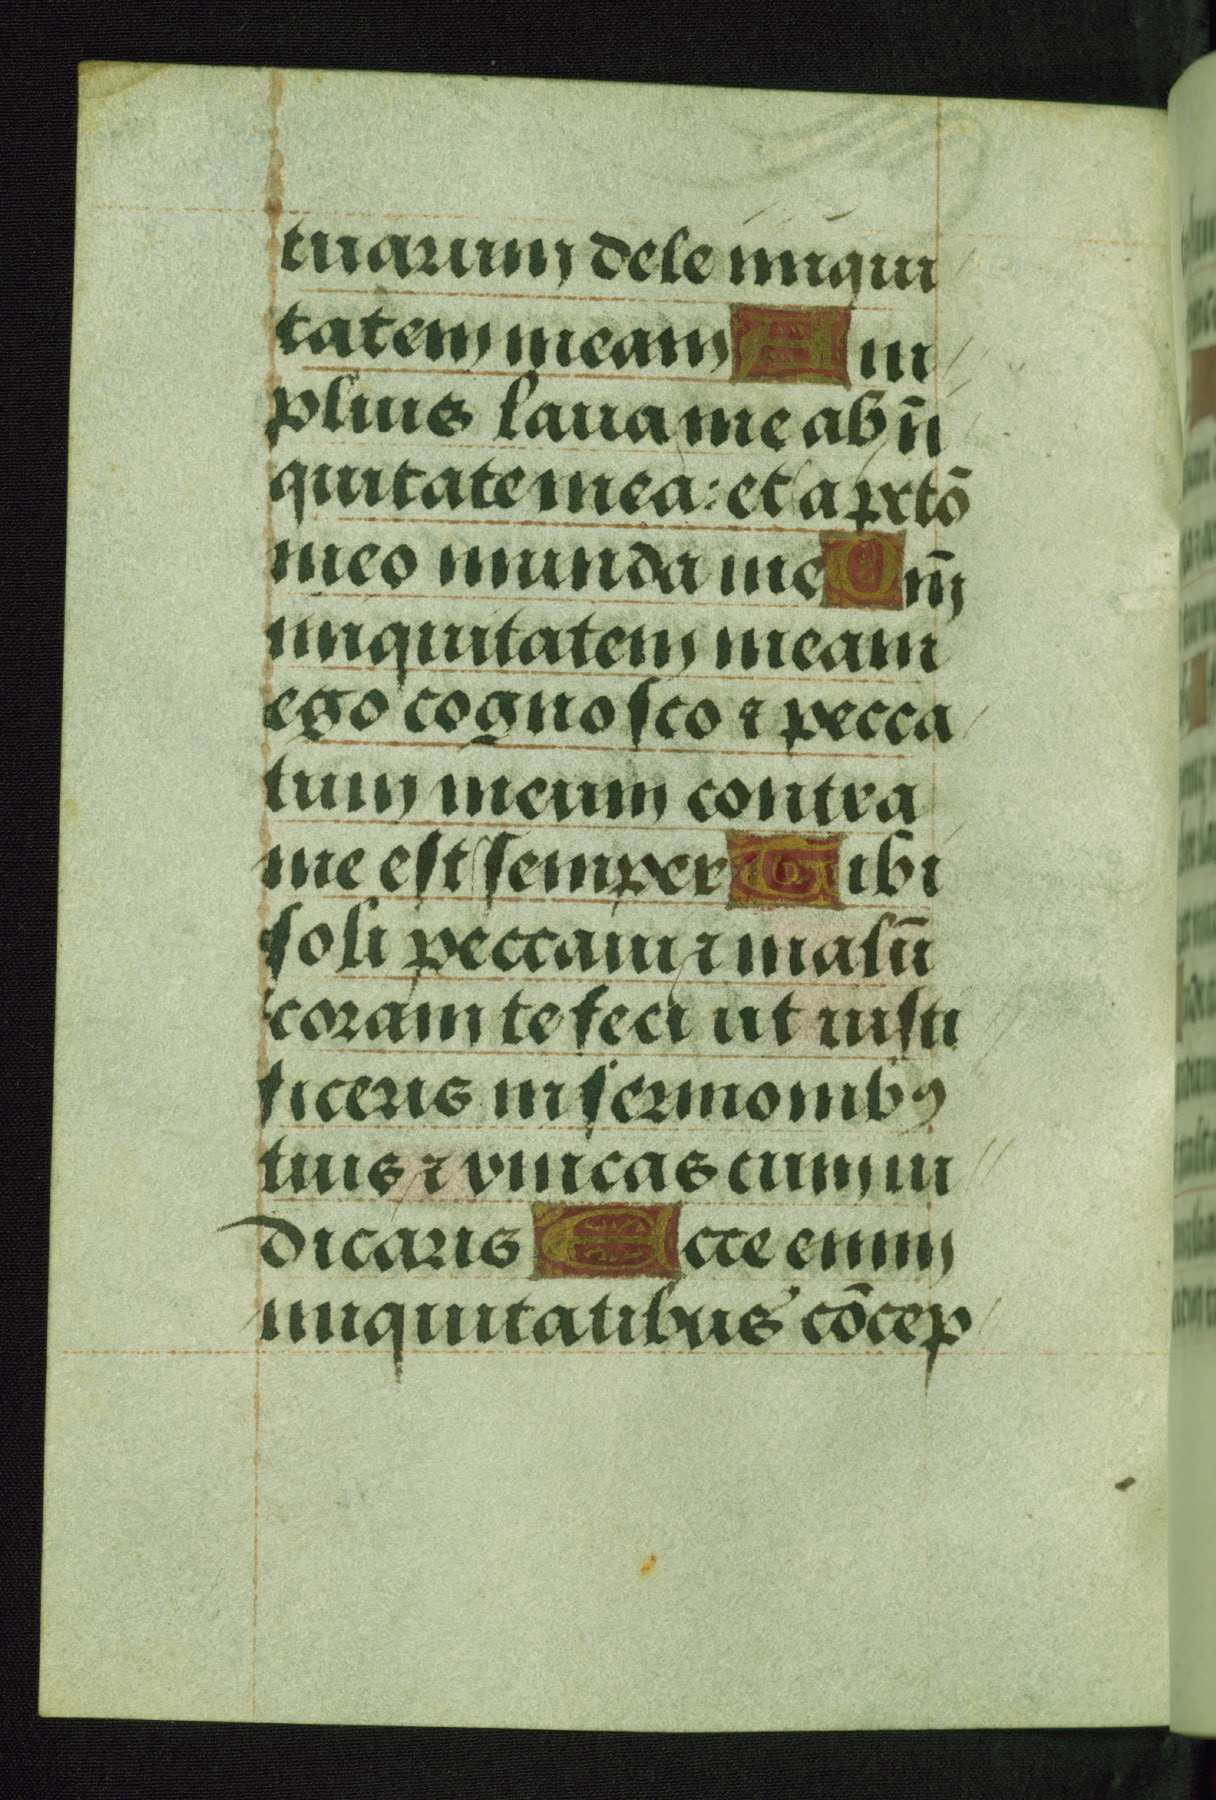 tuarum dele iniqui
tatem meam Am
plius laua me ab ini
quitate mea: et a pctō
meo munda me Qm̄
iniquitatem meam
ego cognosco ⁊ pecca
tum meum contra
me est semper Tibi
soli peccaui ⁊ malū
coram te feci ut iusti
ficeris in sermonibꝰ
tuis ⁊ vincas cum iu
dicaris Ecce enim
iniquitatibus cōcep